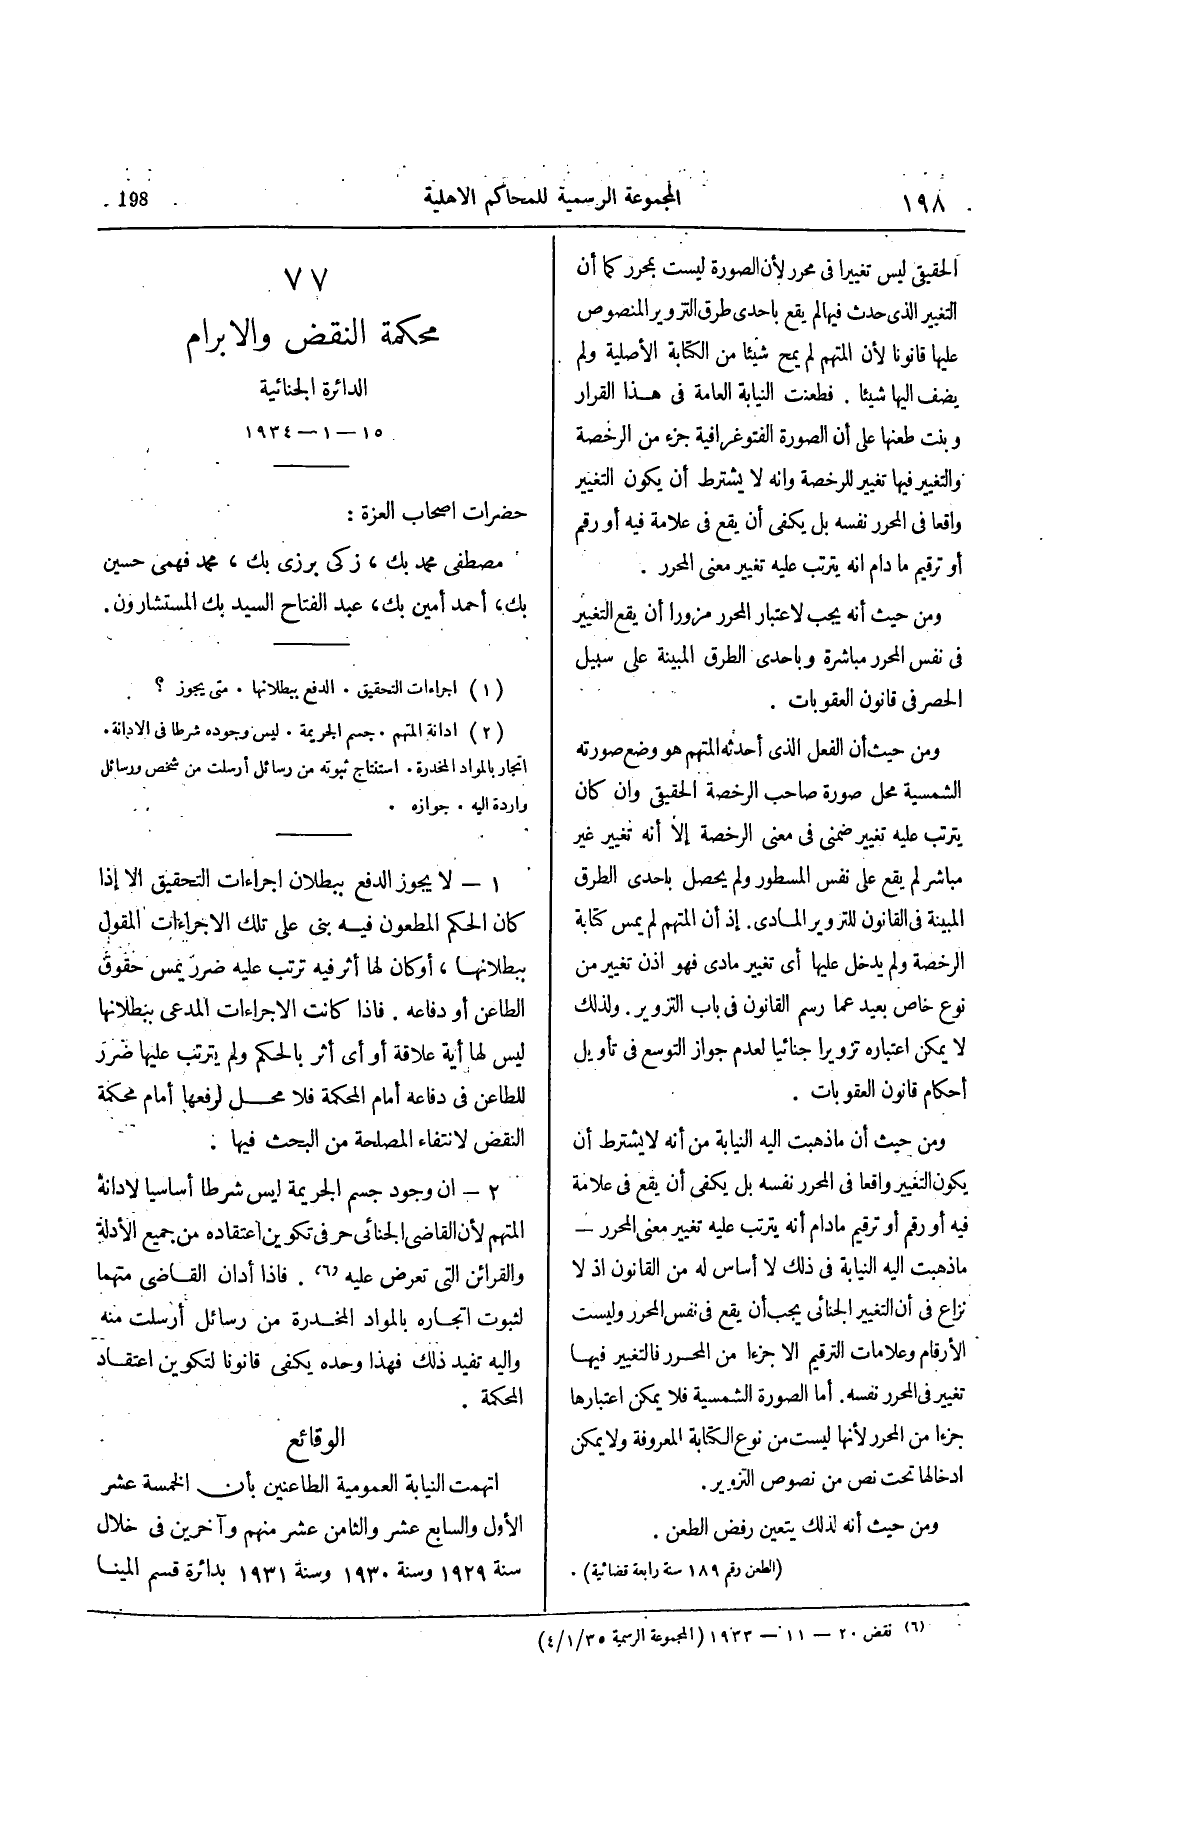 ١٩٨
المجموعة الرسمية للمحاكم الاهلية
198
الحقيقى ليس تغييرا فى محرر لأن الصورة ليست بمحرر كما أن
التغيير الذى حدث فيها لم يقع باحدى طرق التزوير المنصوص
عليها قانونا لأن المتهم لم يمح شيئا من الكتابة الأصلية ولم
يضف اليها شيئا . فطعنت النيابة العامة فى هذا القرار
وبنت طعنها على أن الصورة الفتوغرافية جزء من الرخصة
والتغيير فيها تغيير للرخصة وانه لا يشترط أن يكون التغيير
واقعا فى المحرر نفسه بل يكفى أن يقع فى علامة فيه أو رقم
أو ترقيم ما دام انه يترتب عليه تغيير معنى المحرر .
ومن حيث أنه يجب لاعتبار المحرر مزورا أن يقع التغيير
فى نفس المحرر مباشرة وباحدى الطرق المبينة على سبيل
الحصر فى قانون العقوبات .
ومن حيث أن الفعل الذى أحدثه المتهم هو وضع صورته
الشمسية محل صورة صاحب الرخصة الحقيقى وان كان
يترتب عليه تغيير ضمنى فى معنى الرخصة إلا أنه تغيير غير
مباشر لم يقع على نفس المسطور ولم يحصل باحدى الطرق
المبينة فى القانون للتزوير المادى. إذ أن المتهم لم يمس كتابة
الرخصة ولم يدخل عليها أى تغيير مادى فهو اذن تغيير من
نوع خاص بعيد عما رسم القانون فى باب التزوير. ولذلك
لا يمكن اعتباره تزويرا جنائيا لعدم جواز التوسع فى تأويل
أحكام قانون العقوبات .
ومن حيث أن ماذهبت اليه النيابة من أنه لايشترط أن
يكون التغيير واقعا فى المحرر نفسه بل يكفى أن يقع فى علامة
فيه أو رقم أو ترقيم مادام أنه يترتب عليه تغيير معنى المحرر —
ماذهبت اليه النيابة فى ذلك لا أساس له من القانون اذ لا
نزاع فى أن التغيير الجنائى يجب أن يقع فى نفس المحرر وليست
الأرقام وعلامات الترقيم الا جزءا من المحرر فالتغيير فيها
تغيير فى المحرر نفسه. أما الصورة الشمسية فلا يمكن اعتبارها
جزءا من المحرر لأنها ليست من نوع الكتابة المعروفة ولايمكن
ادخالها تحت نص من نصوص التزوير.
ومن حيث أنه لذلك يتعين رفض الطعن .
(الطعن رقم ١٨٩ سنة رابعة قضائية) .
٧٧
محكمة النقض والابرام
الدائرة الجنائية
١٥ — ١ — ١٩٣٤
حضرات اصحاب العزة :
مصطفى محمد بك ، زكى برزى بك ، محمد فهمى حسين
بك، أحمد أمين بك، عبد الفتاح السيد بك المستشارون.
(١) اجراءات التحقيق . الدفع ببطلانها . متى يجوز ؟
(٢) ادانة المتهم . جسم الجريمة . ليس وجوده شرطا فى الادانة.
اتجار بالمواد المخدرة . استنتاج ثبوته من رسائل أرسلت من شخص ورسائل
واردة اليه . جوازه .
١ — لا يجوز الدفع ببطلان اجراءات التحقيق الا إذا
كان الحكم المطعون فيه بنى على تلك الاجراءات المقول
ببطلانها ، أوكان لها أثر فيه ترتب عليه ضرر يمس حقوق
الطاعن أو دفاعه . فاذا كانت الاجراءات المدعى ببطلانها
ليس لها أية علاقة أو أى أثر بالحكم ولم يترتب عليها ضرر
للطاعن فى دفاعه أمام المحكمة فلا محل لرفعها أمام محكمة
النقض لانتفاء المصلحة من البحث فيها .
٢ — ان وجود جسم الجريمة ليس شرطا أساسيا لادانة
المتهم لأن القاضى الجنائى حر فى تكوين اعتقاده من جميع الأدلة
والقرائن التى تعرض عليه (٦) . فاذا أدان القاضى متهما
لثبوت اتجاره بالمواد المخدرة من رسائل أرسلت منه
واليه تفيد ذلك فهذا وحده يكفى قانونا لتكوين اعتقاد
المحكمة .
الوقائع
اتهمت النيابة العمومية الطاعنين بأن الخمسة عشر
الأول والسابع عشر والثامن عشر منهم وآخرين فى خلال
سنة ١٩٢٩ وسنة ١٩٣٠ وسنة ١٩٣١ بدائرة قسم المينا
(٦) نقض ٢٠ — ١١ — ١٩٣٣ (المجموعة الرسمية ٤/١/٣٥)